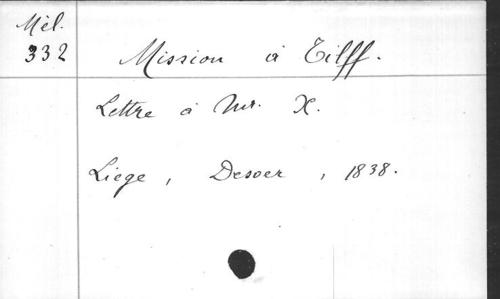 Mél.
332
Mission à Tilff.
Lettre à Mr. X.
Liege, Desoer, 1838.